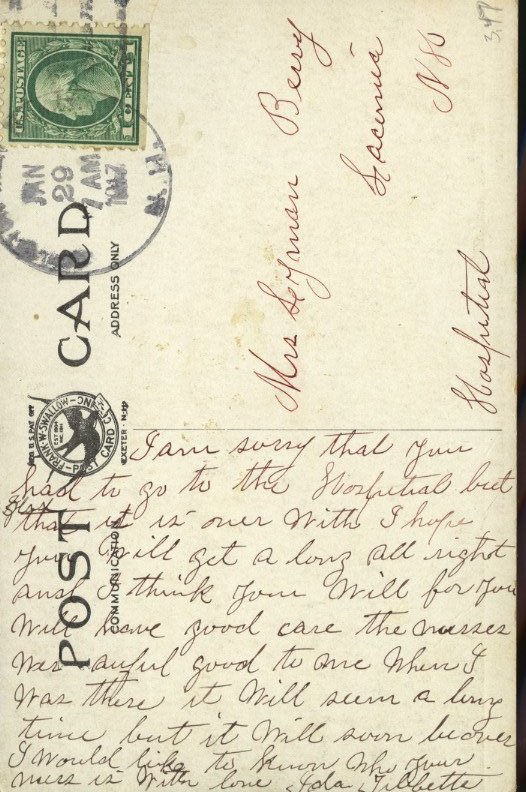 3.47
U.S. POSTAGE
1 CENT 1
JAN
29
7 AM
1917
N.H.
POST CARD
ADDRESS ONLY
COMMUNICATION
FRANK W. SWALLOW
POST CARD CO. INC.
EXETER N-H
Mrs Lyman Berry
Laconia
N H
Hospitial
I am sorry that you
had to go to the Hospitial but
that it is over with I hope
you Will get a long all right
and I think you Will for you
Will have good care the nurses
was auful good to me When I
Was there it Will seem a long
time but it Will soon be over
I Would like to know who your
nurs is With love Ida Tibbetts